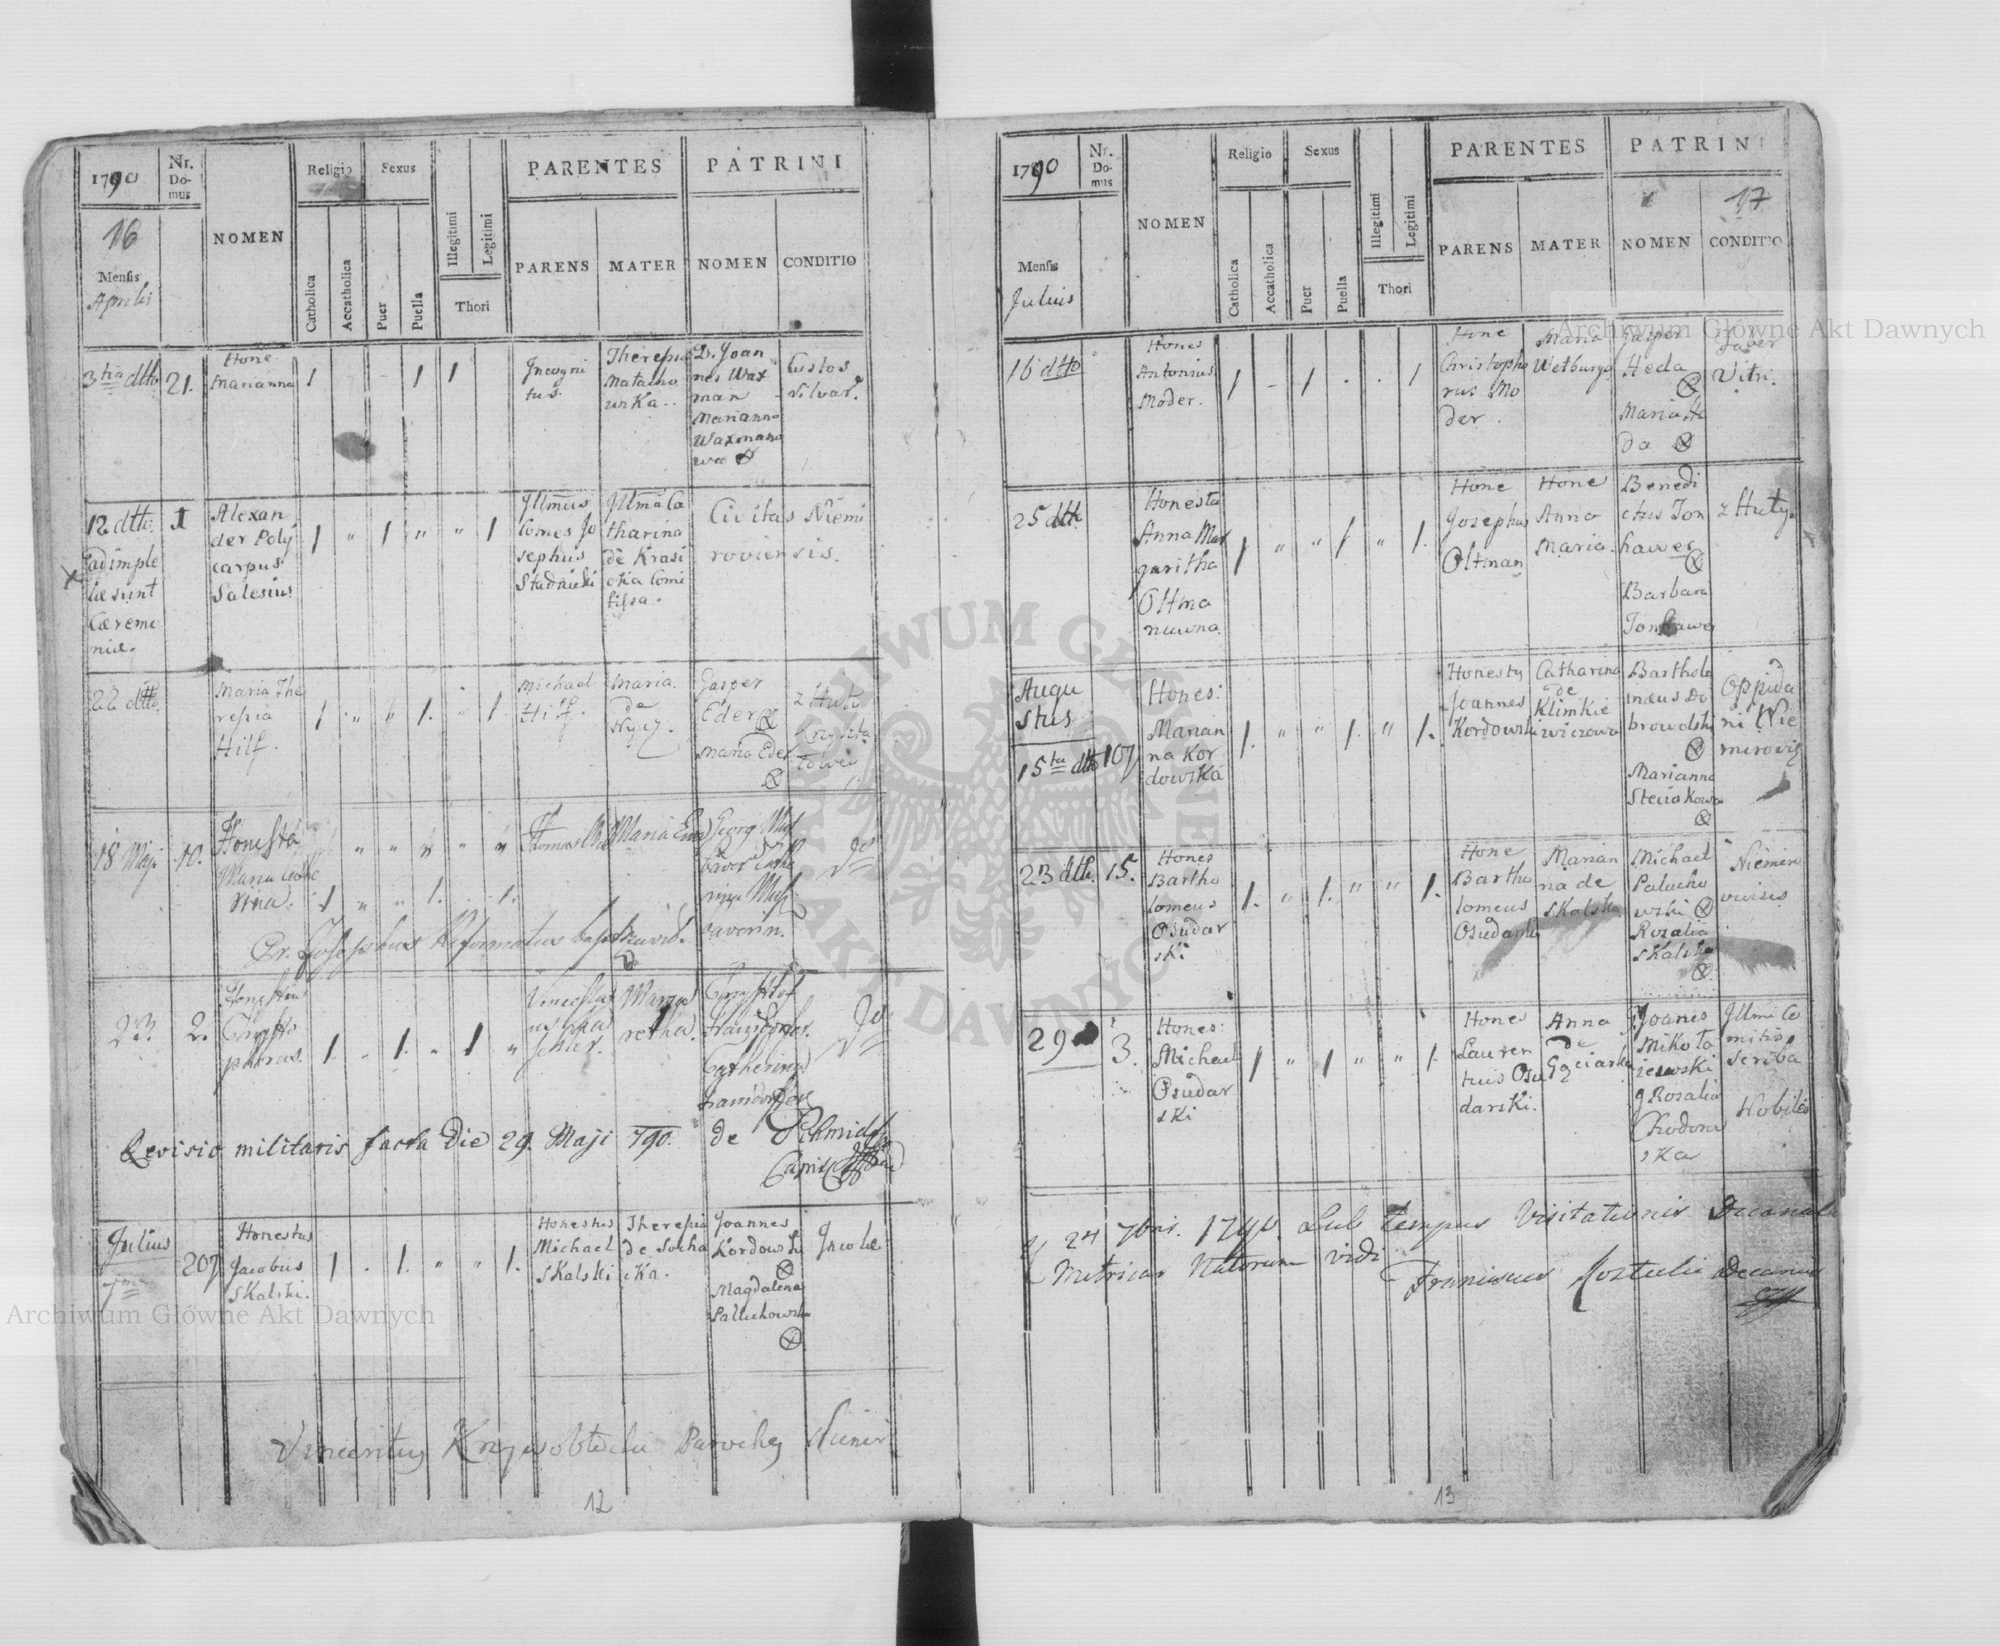 1790
Nr.
Do-
mus
NOMEN
Religio
Sexus
PARENTES
PATRINI
16
Mensis
Aprilis
Catholica
Accatholica
Puer
Puella
Illegitimi
Legitimi
Thori
PARENS
MATER
NOMEN
CONDITIO
3tia dtto
21.
Hone
Marianna
1
-
1
1
Incogni
tus.
Theresia
D. Joan
nes Wax
man
Marianna
Waxmano
wa
Custos
Silvar.
12 dtto
1
adimple
tae sunt
Caeremo
niae.
Alexan
der Poly
carpus
Salesius
1
"
1
"
"
1
Illmus
Comes Jo
sephus
Stadnicki
Illma Ca
tharina
de Krasi
cka Comi
tissa.
Civitas Niemi
roviensis.
22 dtto
Maria The
resia
Hilf.
1
"
"
1.
"
1.
Michael
Hilf.
Maria
de
Nycz.
Gasper
Eder
Maria Eder
z Huty
Kryszta
łowei
18 Maji
10.
Honesta
Maria
1
"
"
1.
1.
Thomas
Maria
Georg
Pr. Josephus Reformatus baptisavit.
23.
2.
1.
1.
"
1
"
Marga
retha.
Catherina
Revisio militaris facta Die 29. Maji 790. de Schmidt
Julius
7ma
207
Honestus
Jacobus
Skalski.
1
.
1.
"
"
1.
Honestus
Michael
Skalski
Theresia
de Socha
cka.
Joannes
Kordowski
Magdalena
Paluchowska
Incolae
Vincentius Parochus Niemir
12
1790
Nr.
Do-
mus
NOMEN
Religio
Sexus
PARENTES
PATRINI
17
Mensis
Julius
Catholica
Accatholica
Puer
Puella
Illegitimi
Legitimi
Thori
PARENS
MATER
NOMEN
CONDITIO
16 dtto
Hones
Antonius
Moder.
1
-
1
.
.
1
Hone
Christopho
rus Mo
der.
Maria
Wetburga
Gasper
Heda
Maria He
da
Faber
Vitri.
25 dtto
Honesta
Anna Mar
garitha
Oltma
nowna
1
"
"
1
"
1.
Hone
Josephus
Oltman
Hone
Anna
Maria.
Benedi
ctus Ton
hawer
Barbara
Tonhawer
z Huty.
Augu
stus
15ta dtto
107
Hones:
Marian
na Kor
dowska
1.
"
"
1.
"
1.
Honesty
Joannes
Kordowski
Catharina
de
Klimkie
wiczowa
Bartholo
maeus Do
browolski
Marianna
Steciakowa
Oppida
ni Nie
mirovis
23 dtto.
15.
Hones
Bartho
lomeus
Osudar
ski
1.
"
1.
"
"
1.
Hone
Bartho
lomeus
Osudarski
Marian
na de
Skalska
Michael
Palucho
wski
Rozalia
Skalska
Niemiro
vieisis
29
3.
Hones:
Michael
Osudar
ski
1
"
1
"
"
1.
Hones
Lauren
tius Osu
darski.
Anna
de
Joanes
Mikoła
iewski
g Rosalia
Chodorow
ska
Illmi Co
mitis
scriba
Nobiles
24 7bris. 1790. Sub tempus Visitationis Decanalis
Metricas Natorum vidi Franiscus Decanus
13
Archiwum Główne Akt Dawnych
Archiwum Główne Akt Dawnych
ARCHIWUM GŁÓWNE AKT DAWNYCH